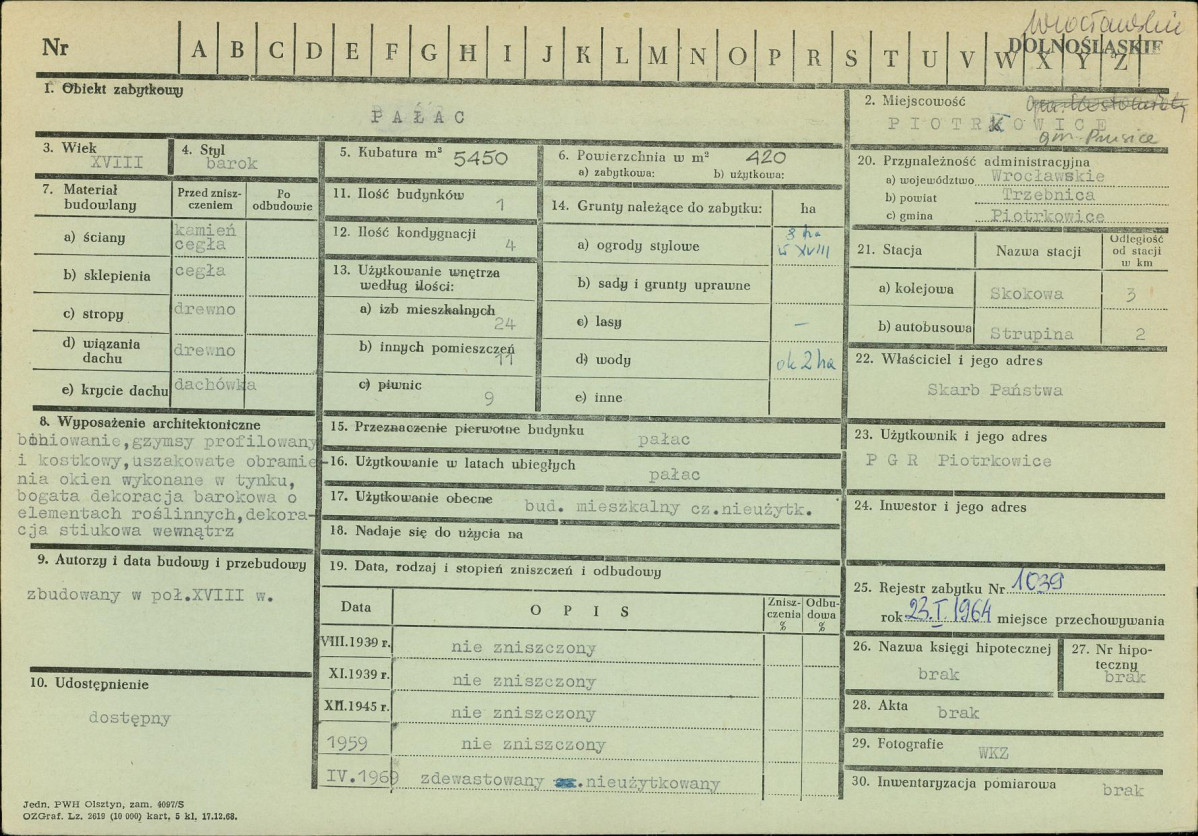 Nr A B C D E F G H I J K L M N O P R S T U V W X Y Z
Wrocławskie
DOLNOŚLĄSKIE
1. Obiekt zabytkowy
PAŁAC
2. Miejscowość
PIOTRKOWICE
gm. Prusice
3. Wiek
XVIII
4. Styl
barok
5. Kubatura m³ 5450
6. Powierzchnia w m² 420
a) zabytkowa: b) użytkowa:
7. Materiał budowlany
Przed zniszczeniem
Po odbudowie
a) ściany kamień cegła
b) sklepienia cegła
c) stropy drewno
d) wiązania dachu drewno
e) krycie dachu dachówka
8. Wyposażenie architektoniczne
boniowanie, gzymsy profilowany
i kostkowy, uszakowate obramie-
nia okien wykonane w tynku,
bogata dekoracja barokowa o
elementach roślinnych, dekora-
cja stiukowa wewnątrz
9. Autorzy i data budowy i przebudowy
zbudowany w poł.XVIII w.
10. Udostępnienie
dostępny
11. Ilość budynków 1
12. Ilość kondygnacji 4
13. Użytkowanie wnętrza
według ilości:
a) izb mieszkalnych 24
b) innych pomieszczeń 11
c) piwnic 9
14. Grunty należące do zabytku: ha
a) ogrody stylowe 8 ha
XVIII
b) sady i grunty uprawne
c) lasy –
d) wody ok 2 ha
e) inne
15. Przeznaczenie pierwotne budynku pałac
16. Użytkowanie w latach ubiegłych pałac
17. Użytkowanie obecne bud. mieszkalny cz.nieużytk.
18. Nadaje się do użycia na
19. Data, rodzaj i stopień zniszczeń i odbudowy
Data OPIS Zniszczenia % Odbudowa %
VIII.1939 r. nie zniszczony
XI.1939 r. nie zniszczony
XII.1945 r. nie zniszczony
1959 nie zniszczony
IV.1969 zdewastowany .nieużytkowany
20. Przynależność administracyjna
a) województwo Wrocławskie
b) powiat Trzebnica
c) gmina Piotrkowice
21. Stacja Nazwa stacji Odległość od stacji w km
a) kolejowa Skokowa 3
b) autobusowa Strupina 2
22. Właściciel i jego adres
Skarb Państwa
23. Użytkownik i jego adres
PGR Piotrkowice
24. Inwestor i jego adres
25. Rejestr zabytku Nr 1039
rok 23.I 1964 miejsce przechowywania
26. Nazwa księgi hipotecznej
brak
27. Nr hipoteczny
brak
28. Akta brak
29. Fotografie WKZ
30. Inwentaryzacja pomiarowa brak
Jedn. PWH Olsztyn, zam. 4097/S
OZGraf. Lz. 2619 (10 000) kart. 5 kl. 17.12.68.